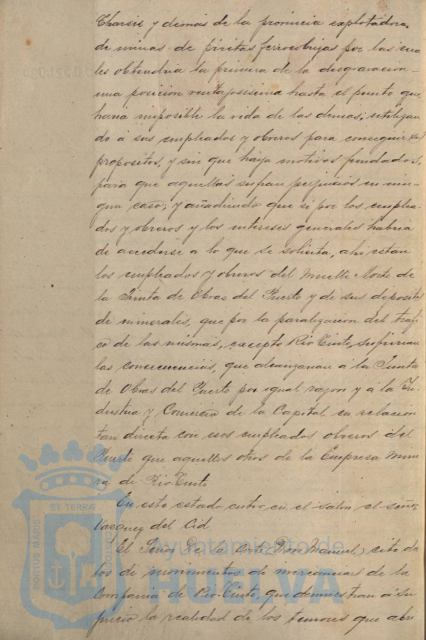 Tharsis y demás de la provincia explotadoras
de minas de piritas ferrocobrizas por las cua
les obtendria la primera de la desgravacion
una posición ventajosisima hasta el punto que
haria imposible la vida de las demas, utilizan
do á sus empleados y obreros para conseguir sus
propositos, y sin que haya motivos fundados,
para que aquellos sufran perjuicios en nin
gun caso; y añadiendo que si por los emplea
dos y obreros y los intereses generales habria
de accederse a lo que se solicita, ahi estan
los empleados y obreros del Muelle Norte de
la Junta de Obras del Puerto y de sus depositos
de minerales, que por la paralizacion del trafi
co de las mismas, excepto Rio Tinto, sufririan
las consecuencias, que alcanzarian á la Junta
de Obras del Puerto por igual razon y á la In
dustria y Comercio de la Capital en relacion
tan directa con esos empleados obreros del
Puerto que aquellos otros de la Empresa Mine
ra de Rio Tinto
En este estado entro en el salon el señor
Vazquez del Cid
El Señor de la Corte Don Manuel, cito da
tos de movimientos de mercancias de la
Compañia de Rio Tinto, que demuestran á su
juicio la realidad de los temores que abri
PORTUS MARIS
ET TERRAE
ayuntamiento de
HUELVA